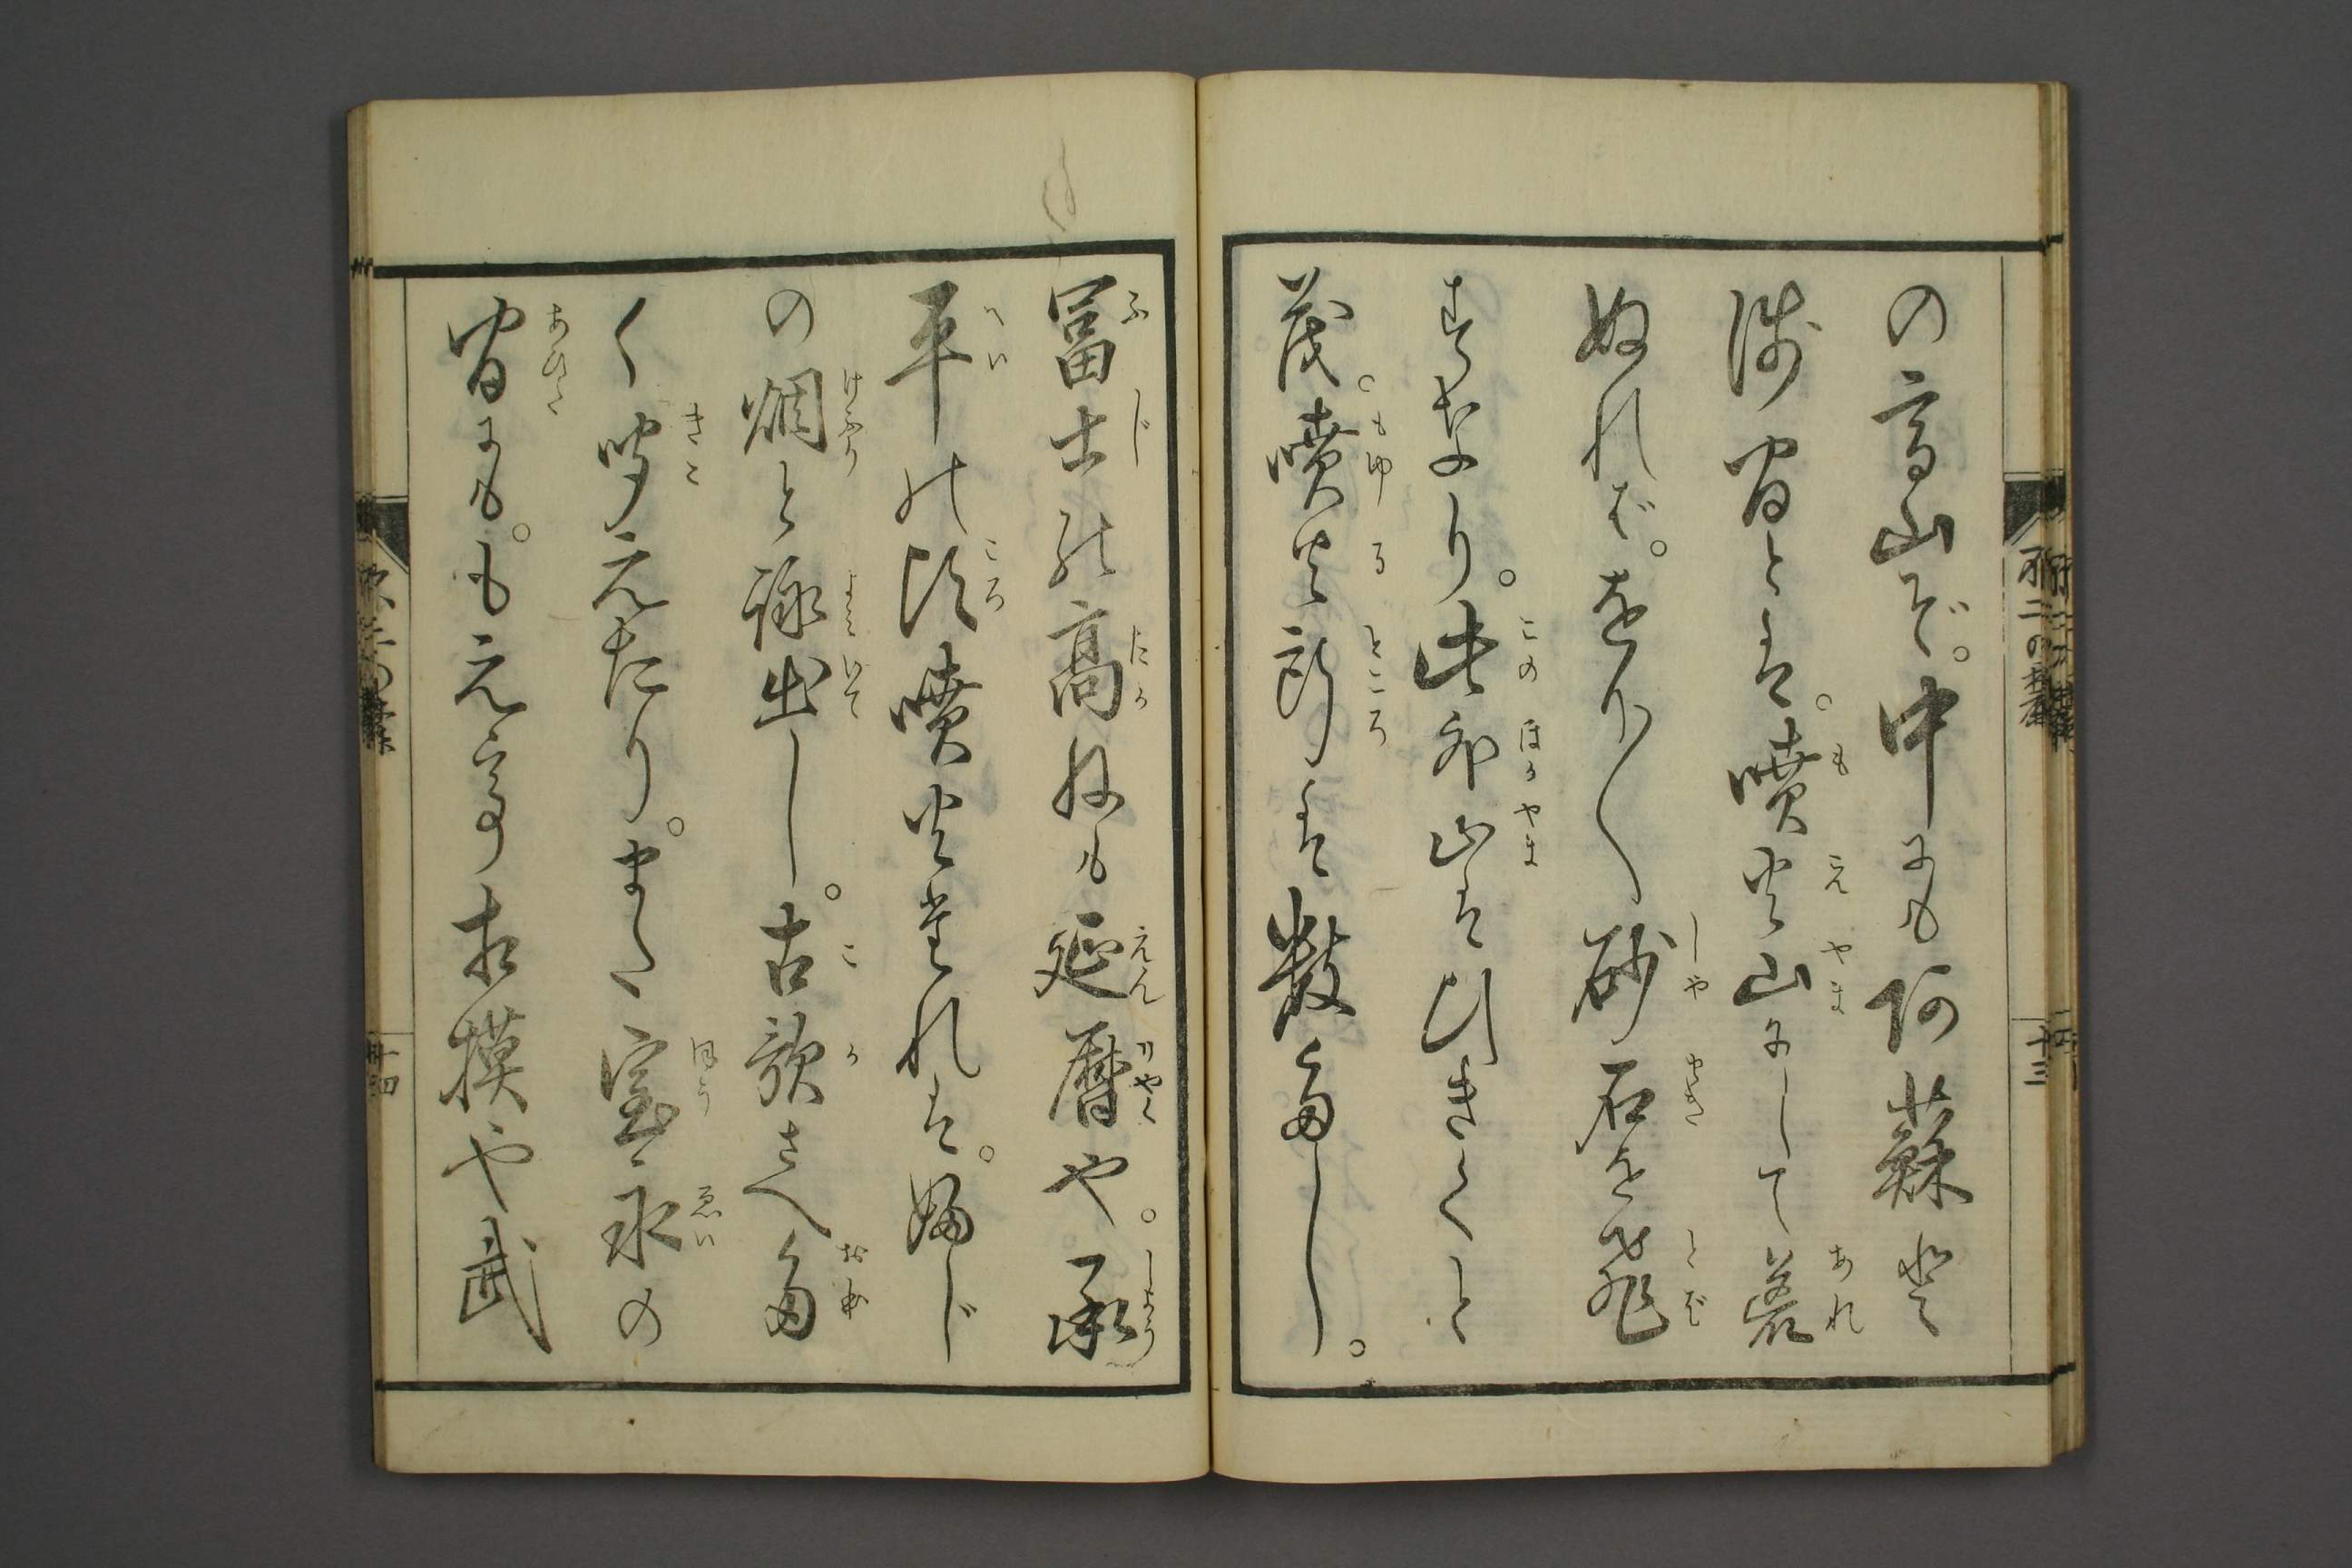 の高山ぞ。中にも阿蘇と
浅間とは。噴火山にして荒
ぬれば。をり〱砂石を飛
すなり。此外山はひきくと
も。噴火所は数多し。
冨士の高ねも延暦や。承
平の頃噴火たれば。ふじ
の烟と詠出し。古歌さへ多
く聞えたり。また宝永の
間にも。もえて相摸や武
十三
十四